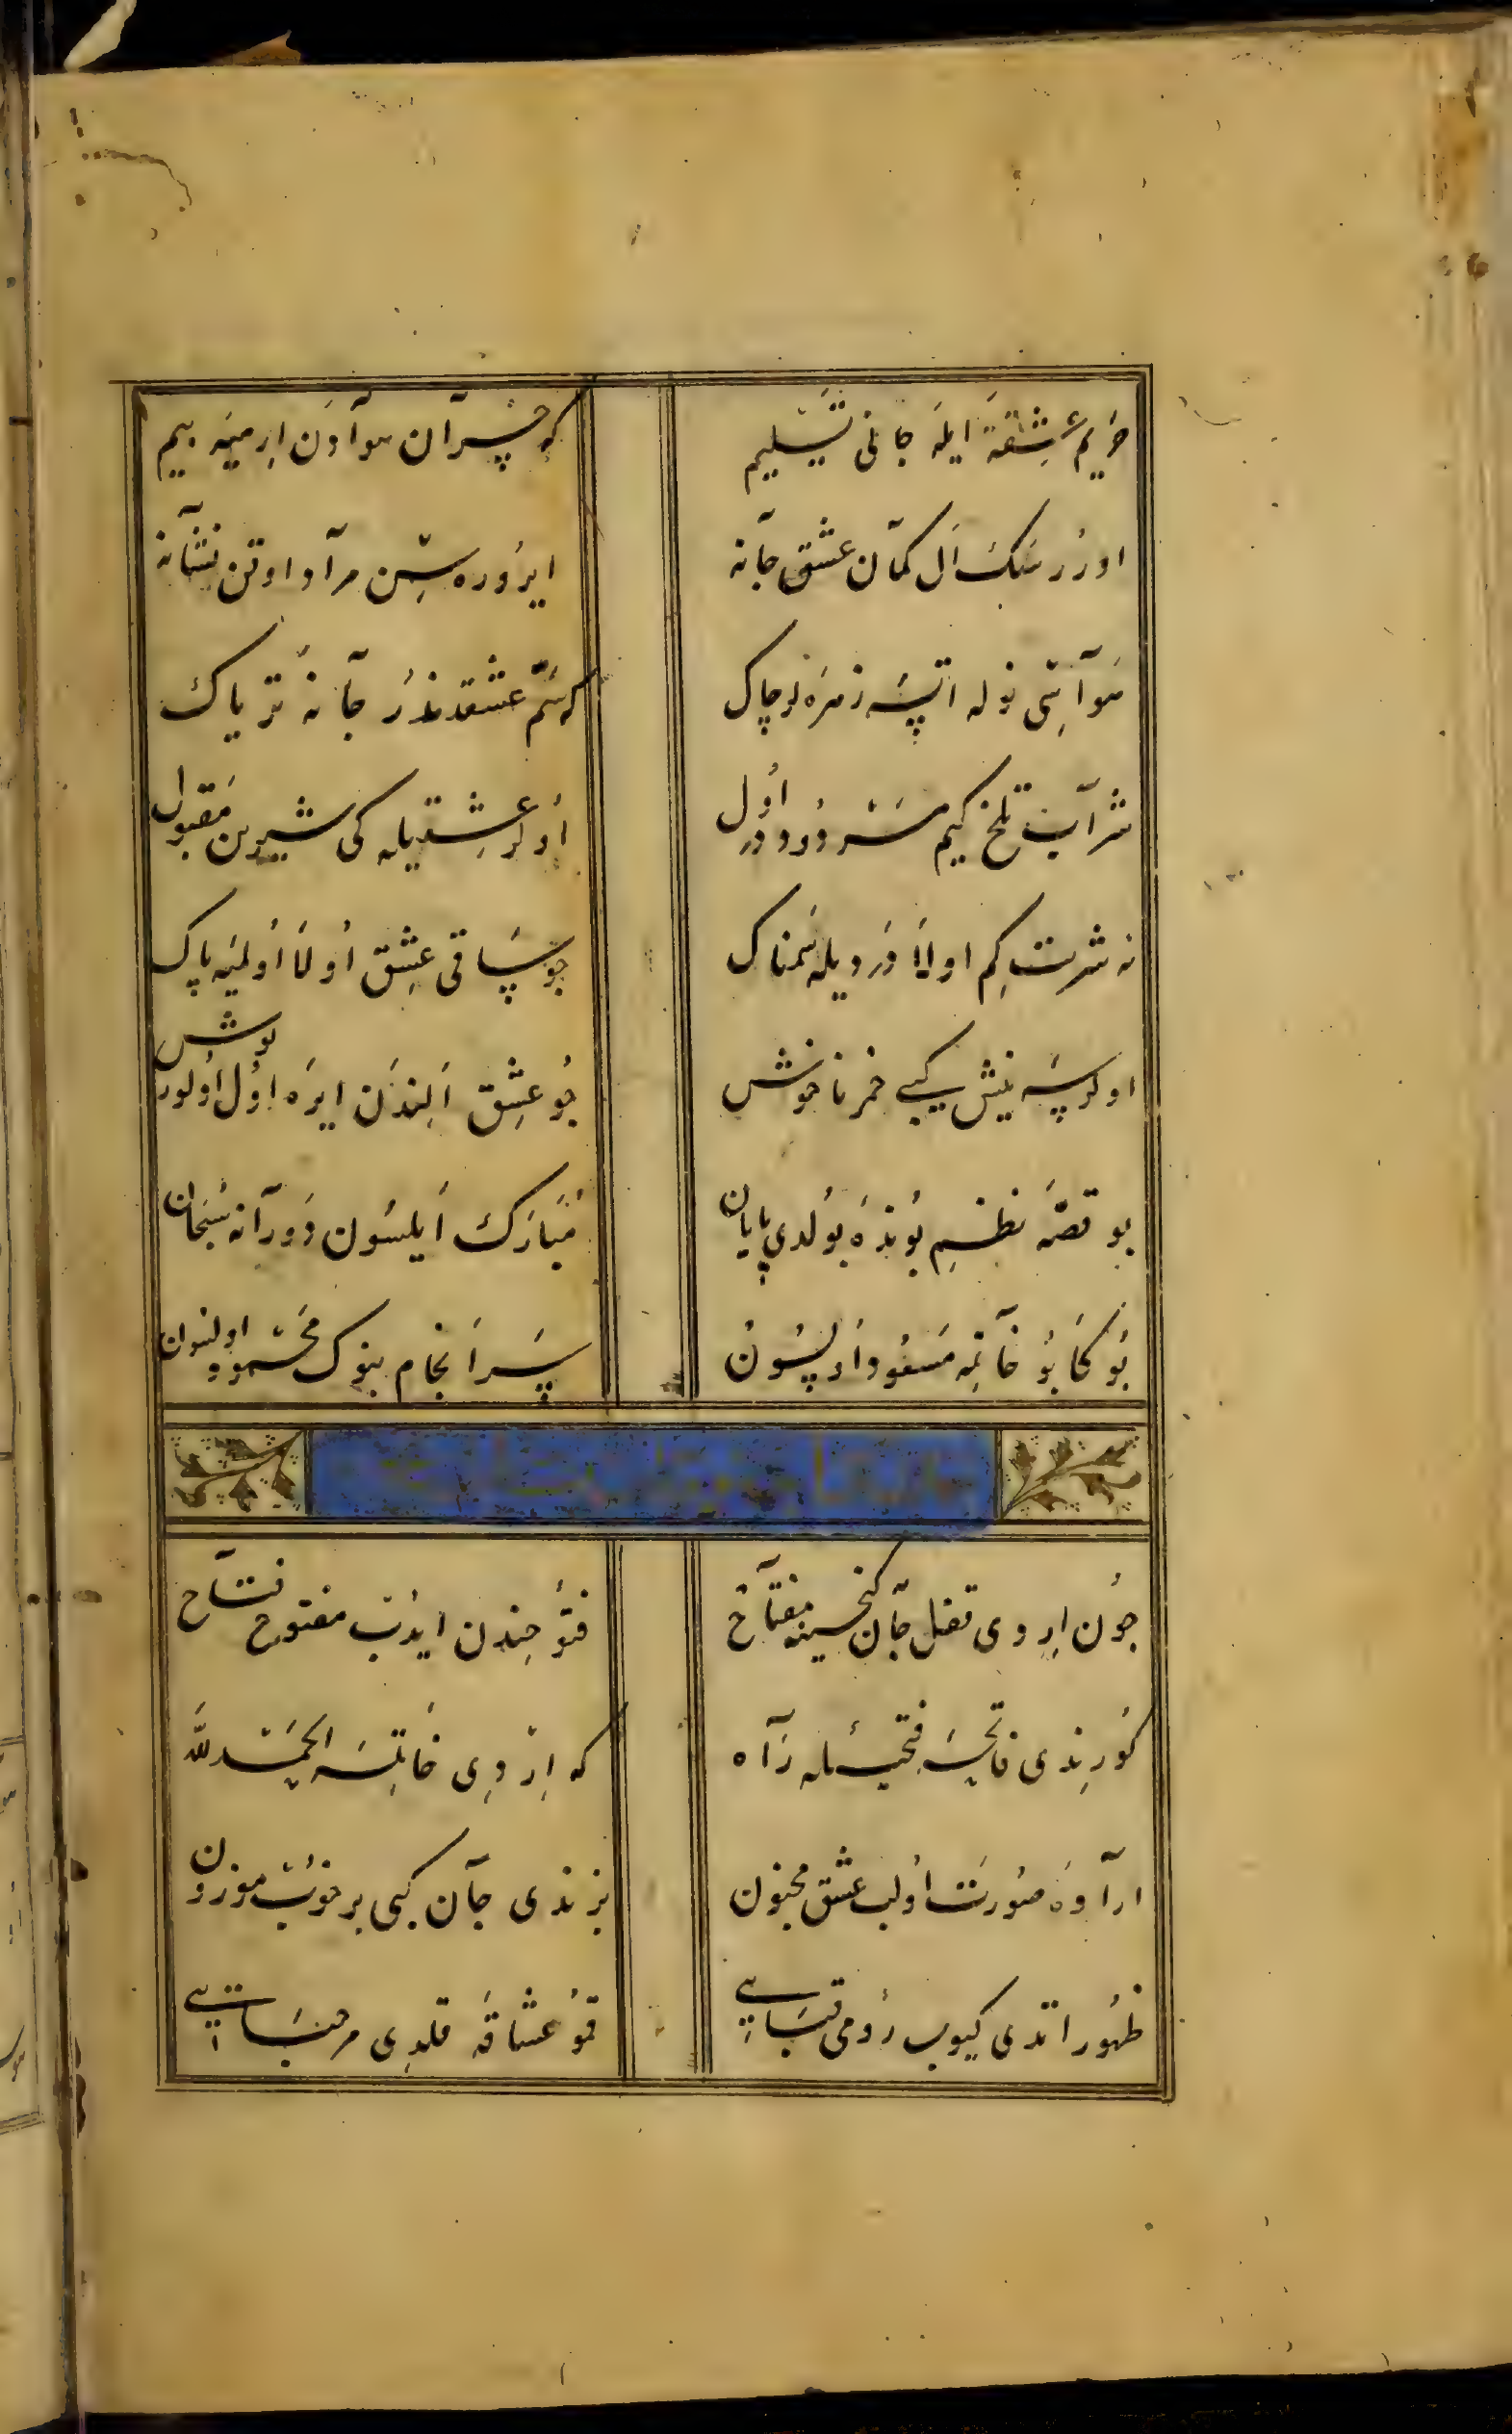 حریم عشقه ایله جانی تسلیم که جبران هوادن ایرمیه بیم
اورر سنک ال کمان عشق جانه ایروره سن مراد اوقن نشانه
هوا سی نوله اتسه زهره لر چاک که سم عشقدندر جانه تریاک
شراب تلخ کیم مستر دورور اول اولر عشقیله کی شیرین مقبول
نه شربت کم اولا دردیله سمناک چو ساقی عشق اولا اولمیه باک
اولرسه نیش کیبی خمر ناخوش چو عشق الندن ایره اول اولور نوش
بو قصه نظمی بونده بولدی پایان مبارک ایلسون دورانه سبحان
بو کتابو خاتمه مسعود اولسون سرانجام بنوک محمود اولسون
چون ایردی قفل جان کنجینه مفتاح فتوحندن ایدب مفتوح فتاح
کورندی فاتحه فتحیله راه که ایردی خاتمه الحمد لله
اراده صورت اولب عشق مجنون بزندی جان کبی بر خوب موزون
ظهور اتدی کیوب رومی قباسی قمو عشاقه قلدی مرحباسی